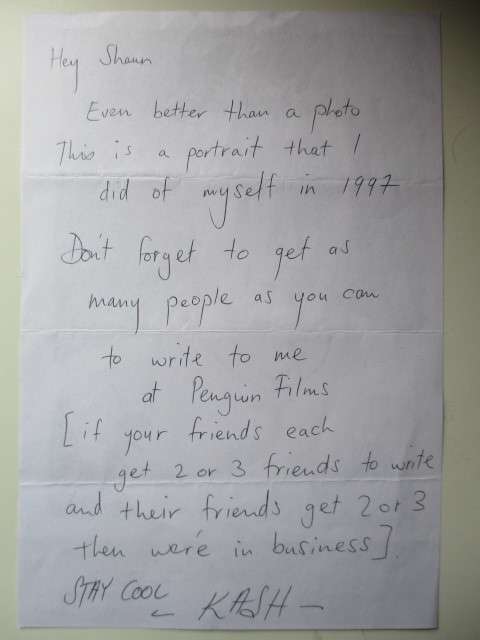 Hey Shaun
Even better than a photo
This is a portrait that I
did of myself in 1997
Don't forget to get as
many people as you can
to write to me
at Penguin Films
[if your friends each
get 2 or 3 friends to write
and their friends get 2 or 3
then we're in business].
STAY COOL
KASH